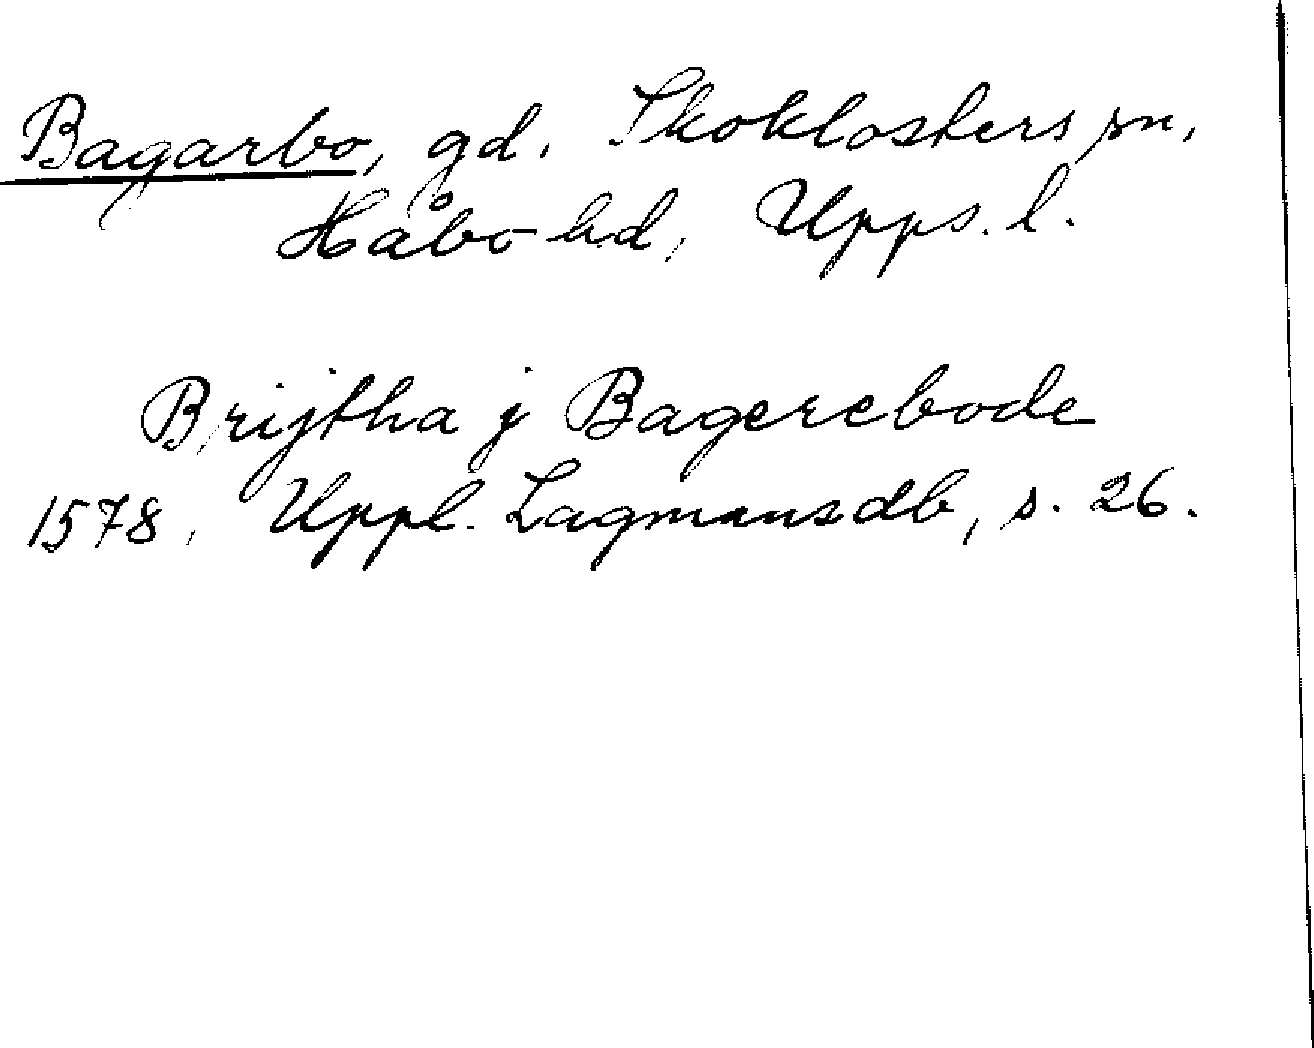 Bagarbo, gd. Skoklosters sn,
Håbo hd, Upps. l.
Brijtha j Bagerebode
1578, Uppl. Lagmansdb, s. 26.